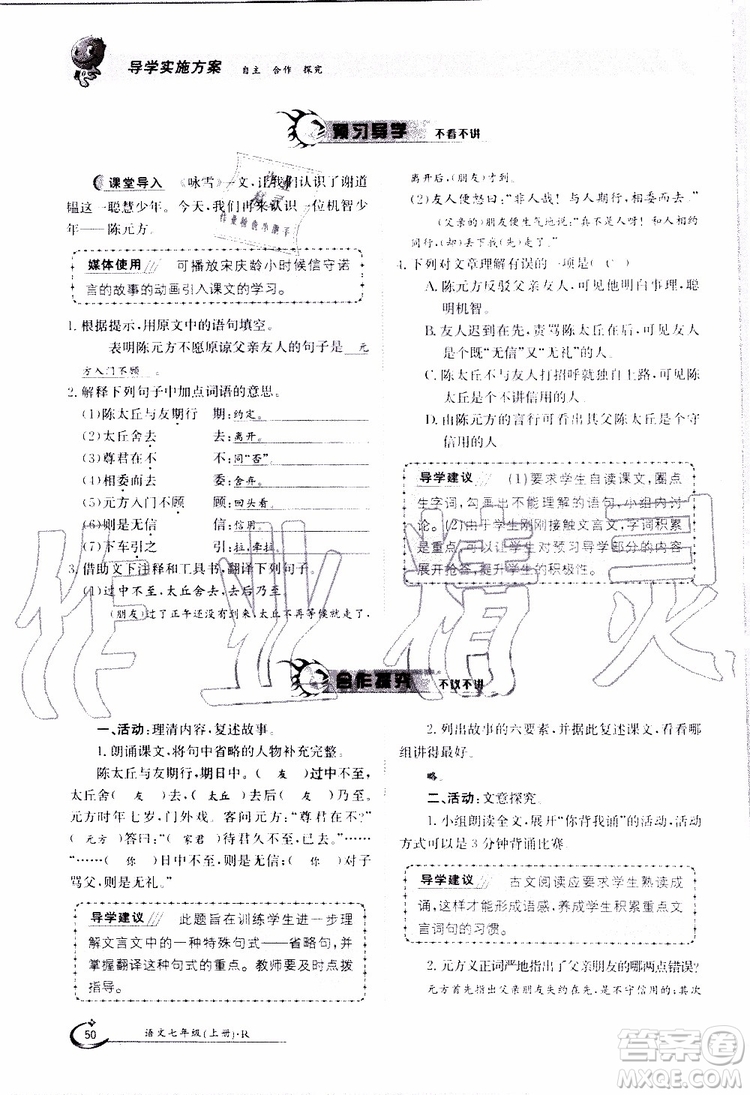 导学实施方案 自主 合作 探究
预习导学 不看不讲
课堂导入 《咏雪》一文,让我们认识了谢道
韫这一聪慧少年。今天,我们再来认识一位机智少
年——陈元方。
媒体使用 可播放宋庆龄小时候信守诺
言的故事的动画引入课文的学习。
1. 根据提示,用原文中的语句填空。
表明陈元方不愿原谅父亲友人的句子是 元
方入门不顾 。
2. 解释下列句子中加点词语的意思。
(1)陈太丘与友期行 期:约定。
(2)太丘舍去 去:离开。
(3)尊君在不 不:同“否”。
(4)相委而去 委:舍弃。
(5)元方入门不顾 顾:回头看。
(6)则是无信 信:信用。
(7)下车引之 引:拉,牵拉。
3. 借助文下注释和工具书,翻译下列句子。
(1)过中不至,太丘舍去,去后乃至。
(朋友)过了正午还没有到来,太丘(陈太丘)
离开后,(朋友)才到。
(2)友人便怒曰:“非人哉!与人期行,相委而去。”
4. 下列对文章理解有误的一项是( C )
A. 陈元方反驳父亲友人,可见他明事理,聪
明机智。
B. 友人迟到在先,责骂陈太丘在后,可见友
人是既“无信”又“无礼”的人。
C. 陈太丘没与友人打招呼就独自上路,可见
陈太丘是个不讲信用的人。
D. 由陈元方的言行可看出其父陈太丘是个守
信用的人
导学建议 (1)要求学生自读课文,圈点
生字词,勾画出不能理解的语句,小组内讨
论。(2)由于学生刚刚接触文言文,字词积累
是重点,可以让学生对预习导学部分的内容
展开抢答,提升学生的积极性。
合作探究 不议不讲
一、活动:理清内容,复述故事。
1. 朗诵课文,将句中省略的人物补充完整。
陈太丘与友期行,期日中。( 友 )过中不至,
太丘舍( 友 )去,( 太丘 )去后( 友 )乃至。
元方时年七岁,门外戏。客问元方:“尊君在不?”
( 元方 )答曰:“( 家君 )待君久不至,已去。”……
“……( 你 )日中不至,则是无信;( 你 )对子
骂父,则是无礼。”
导学建议 此题旨在训练学生进一步理
解文言文中的一种特殊句式——省略句,并
掌握翻译这种句式的重点。教师要适当点拨
指导!
2. 列出故事的六要素,并据此复述课文,看看哪
组讲得最好。
略。
二、活动:文意探究。
1. 小组朗读全文,展开“你背我诵”的活动,活动
方式可以是3分钟背诵比赛
导学建议 古文阅读应要求学生熟读成
诵,这样才能形成语感,养成学生积累重点文
言词句的习惯。
2. 元方义正词严地指出了父亲朋友的哪两点错误?
元方先说父亲朋友“无信”,再说他“无礼”。
50 语文七年级(上册)·R
作业精灵
答案圈